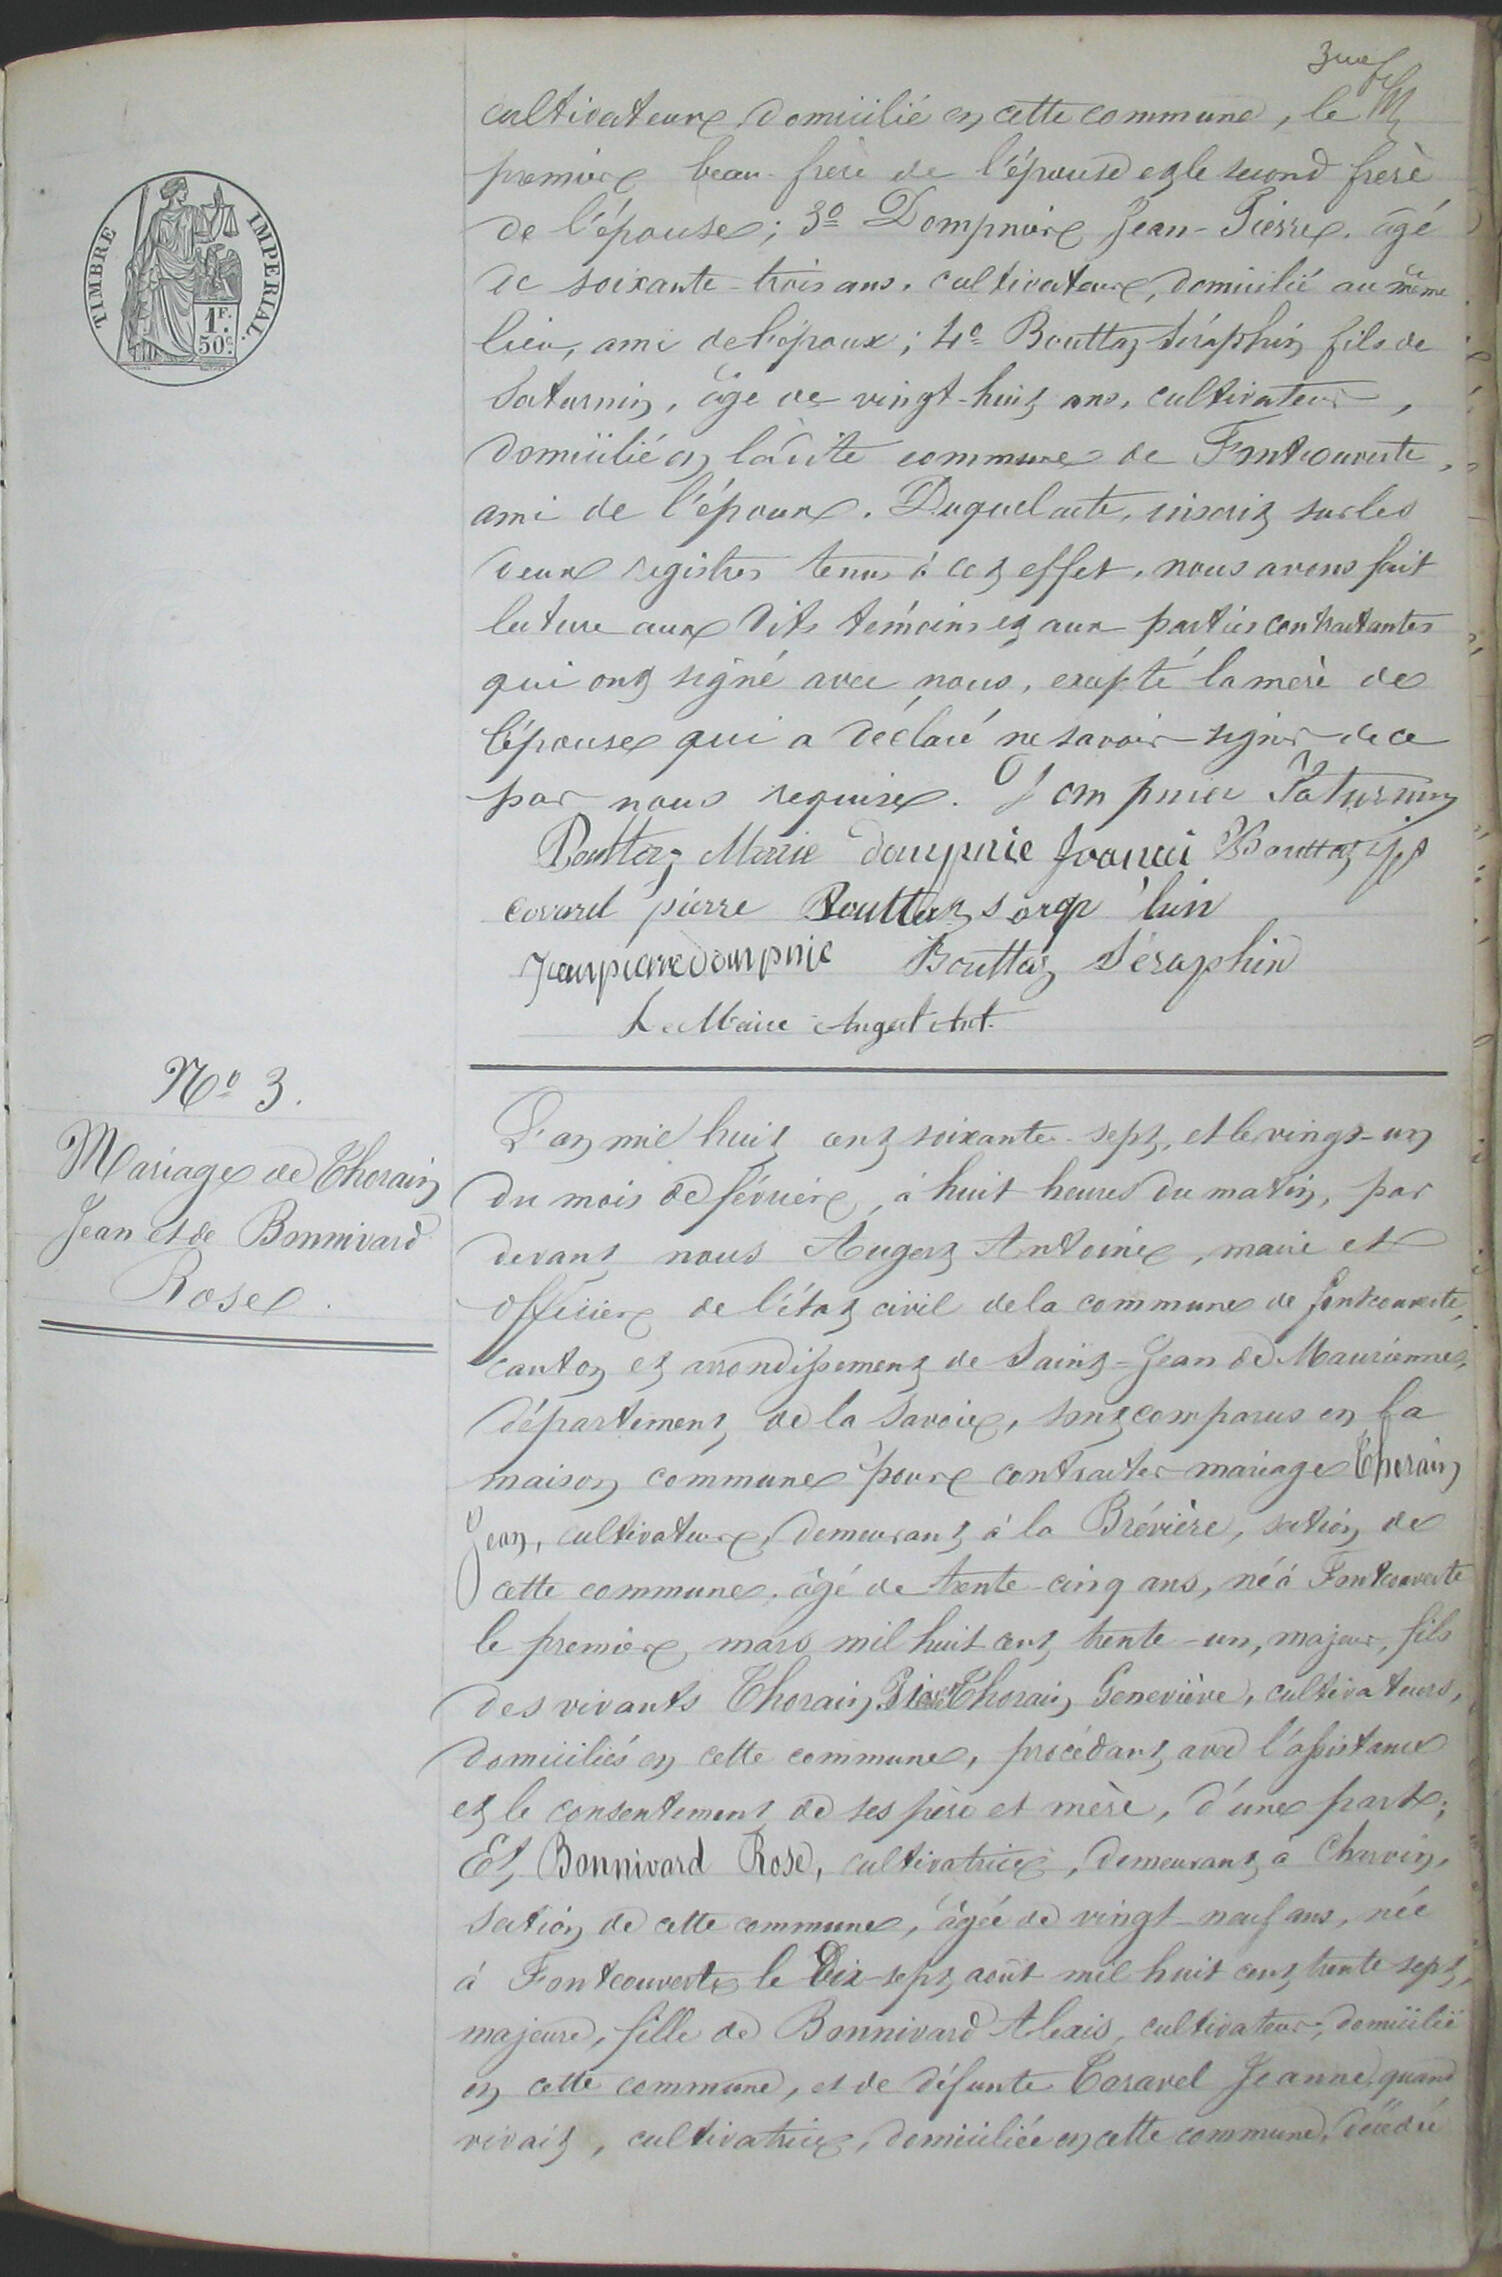 3me f.
cultivateur, domicilié en cette commune, le
premier beau-frère de l'épouse et le second frère
de l'épouse; 3º Dompnier Jean-Pierre, âgé
de soixante-trois ans, cultivateur, domicilié au même
lieu, ami de l'époux; 4º Bouttaz Séraphin fils de
Saturnin, âgé de vingt-huit ans, cultivateur,
domicilié en ladite commune de Fontcouverte,
ami de l'époux. Duquel acte, inscrit sur les
deux registres tenus à cet effet, nous avons fait
lecture aux dits témoins et aux parties contractantes
qui ont signé avec nous, excepté la mère de
l'épouse qui a déclaré ne savoir signer de ce
par nous requise. Dompnier Saturnin
Bouttaz Marie dompnie francoi Bouttaz
covarel pierre Bouttaz seraphin
Jeanpierre dompnie Bouttaz Séraphin
Le Maire Augert Ant.
TIMBRE IMPERIAL.
1F.
50c.
Nº 3.
Mariage de Thorain
Jean et de Bonnivard
Rose.
L'an mil huit cent soixante-sept, et le vingt-un
du mois de février, à huit heures du matin, par
devant nous Augert Antoine, maire et
officier de l'état civil de la commune de Fontcouverte,
canton et arrondissement de Saint-Jean de Maurienne,
département de la Savoie, sont comparus en la
maison commune pour contracter mariage Thorain
Jean, cultivateur, demeurant à la Brévière, section de
cette commune, âgé de trente-cinq ans, né à Fontcouverte
le premier mars mil huit cent trente-un, majeur, fils
des vivants Thorain Pierre Thorain Geneviève, cultivateurs,
domiciliés en cette commune, procédant avec l'assistance
et le consentement de ses père et mère, d'une part;
Et Bonnivard Rose, cultivatrice, demeurant à Charvin,
section de cette commune, âgée de vingt-neuf ans, née
à Fontcouverte le dix-sept août mil huit cent trente sept,
majeure, fille de Bonnivard Alexis, cultivateur, domicilié
en cette commune, et de défunte Taravel Jeanne, quand
vivait, cultivatrice, domiciliée en cette commune, décédée